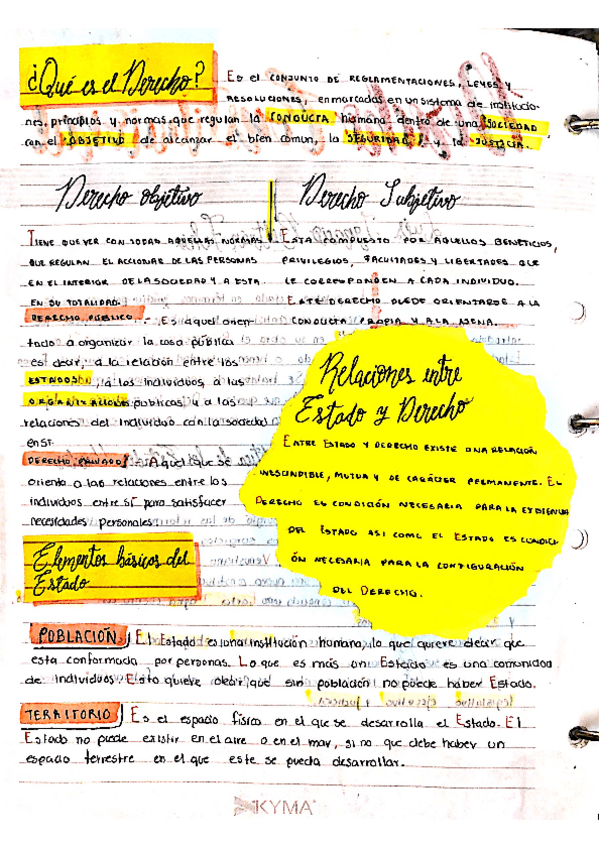 ¿Qué es el Derecho?
Es el CONJUNTO DE REGLAMENTACIONES, LEYES Y
RESOLUCIONES, enmarcadas en un sistema de institucio-
nes, principios y normas que regulan la CONDUCTA humana dentro de una SOCIEDAD
con el OBJETIVO de alcanzar el bien común, la SEGURIDAD y la JUSTICIA.
Derecho objetivo
TIENE QUE VER CON TODAS AQUELLAS NORMAS
QUE REGULAN EL ACCIONAR DE LAS PERSONAS
EN EL INTERIOR DE LA SOCIEDAD Y A ESTA
EN SU TOTALIDAD.
DERECHO PÚBLICO. Es aquel orien-
tado a organizar la cosa pública
es decir, a la relación entre los
ESTADOS, a los individuos a las
ORGANIZACIONES públicas y a las
relaciones del individuo con la sociedad
en sí.
DERECHO PRIVADO. Aquel que se
oriento a las relaciones entre los
individuos entre sí para satisfacer
necesidades personales
Derecho Subjetivo
ESTA COMPUESTO POR AQUELLOS BENEFICIOS,
PRIVILEGIOS, FACULTADES Y LIBERTADES QUE
LE CORRESPONDEN A CADA INDIVIDUO.
ESTE DERECHO PUEDE ORIENTARSE A LA
CONDUCTA PROPIA Y A LA AJENA.
Relaciones entre
Estado y Derecho
ENTRE ESTADO Y DERECHO EXISTE UNA RELACIÓN
INESCINDIBLE, MUTUA Y DE CARÁCTER PERMANENTE. EL
DERECHO ES CONDICIÓN NECESARIA PARA LA EXISTENCIA
DEL ESTADO ASI COMO EL ESTADO ES CONDICI
ÓN NECESARIA PARA LA CONFIGURACIÓN
DEL DERECHO.
Elementos básicos del
Estado
POBLACIÓN El Estado es una institución humana, lo que quiere decir que
esta conformada por personas. Lo que es más un Estado es una comunidad
de individuos. Esto quiere decir que sin población no puede haber Estado.
TERRITORIO Es el espacio físico en el que se desarrolla el Estado. El
Estado no puede existir en el aire o en el mar, si no que debe haber un
espacio terrestre en el que este se pueda desarrollar.
KYMA